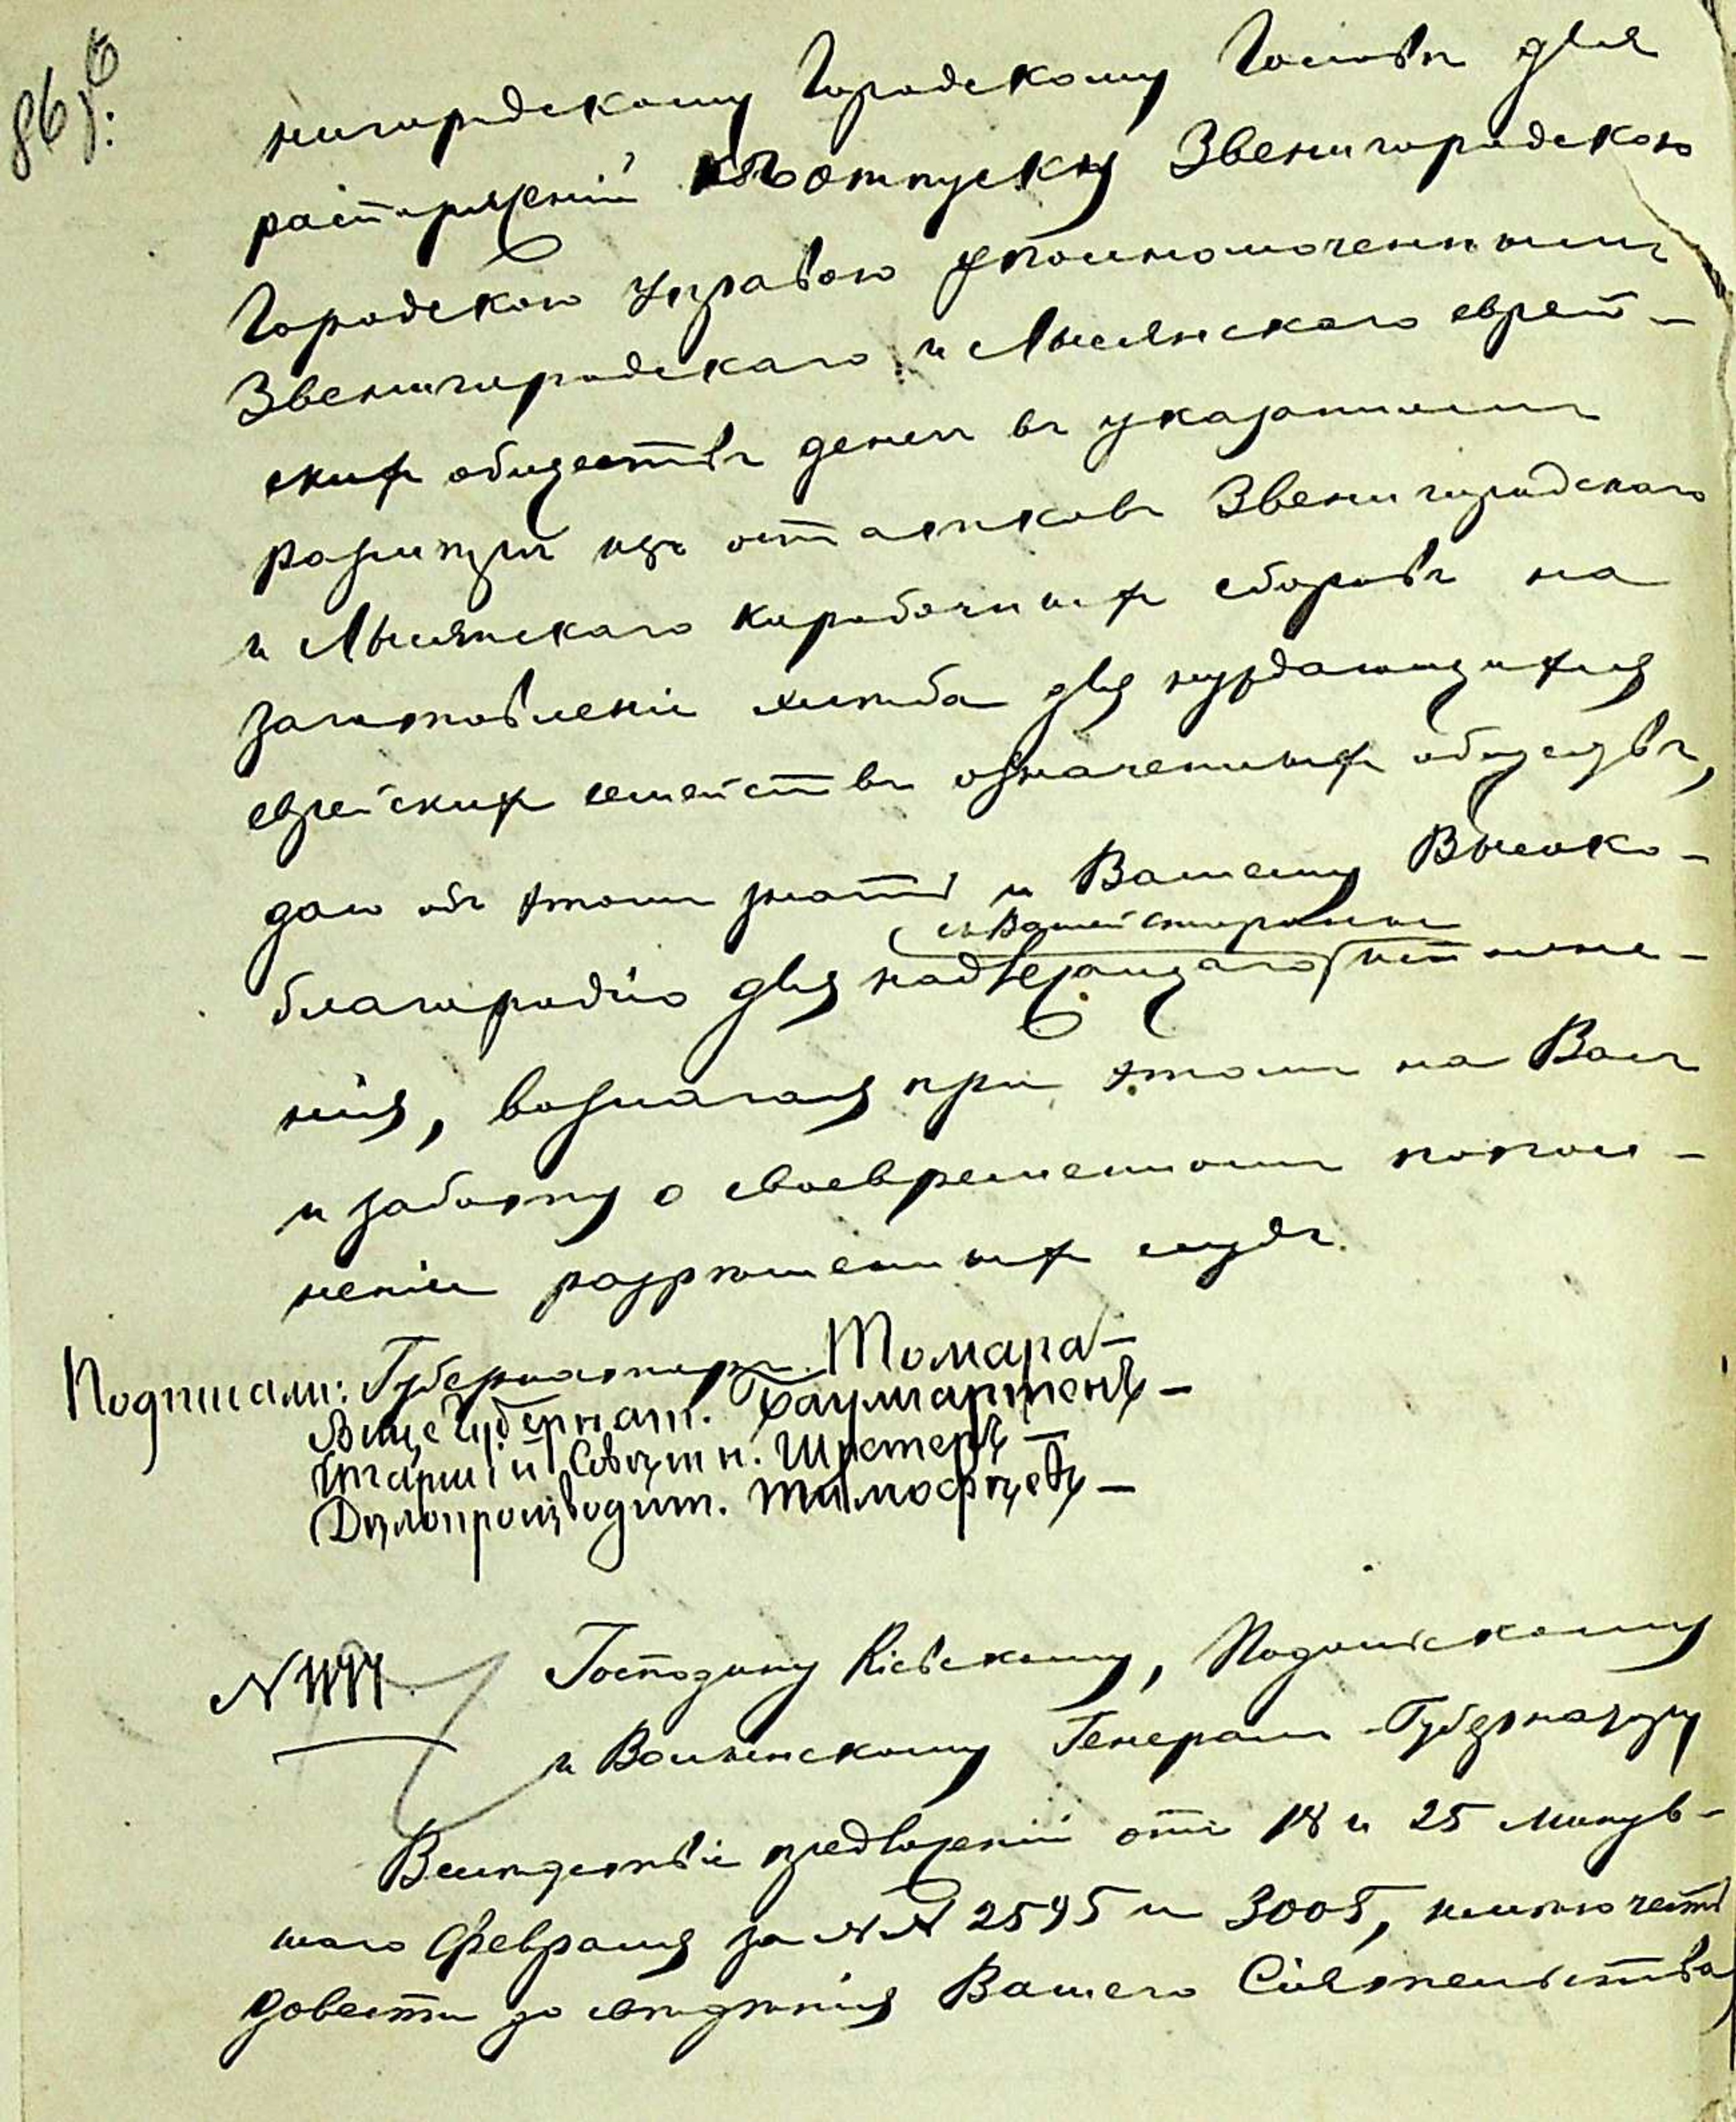 86 об:
нигородскому Городскому Головѣ для
распоряженій къ отпуску Звенигородскою
Городскою Управою уполномоченнымъ
Звенигородскаго и Лысянскаго еврей-
скихъ обществъ денегъ въ указанномъ
размѣрѣ изъ остатковъ Звенигородскаго
и Лысянскаго коробочныхъ сборовъ на
заготовленіе хлѣба для нуждающихся
еврейскихъ семействъ означенныхъ обществъ,
даю объ этомъ знать и Вашему Высоко-
съ Вашей стороны
благородію для надлежащаго исполне-
нія, возлагая при этомъ на Васъ
и заботу о своевременномъ попол-
неніи разрѣшенныхъ ссудъ.
Подписали: Губернаторъ Томара –
Вице Губернат. Баумгартенъ –
Старшій Совѣтн. Шкетеръ –
Дѣлопроизводит. Тимофѣевъ –
Господину Кіевскому, Подольскому
и Волынскому Генералъ-Губернатору
Вслѣдствіе предложеній отъ 18 и 25 минув-
шаго Февраля за №№ 2595 и 3005, имѣю честь
довести до свѣдѣнія Вашего Сіятельства,